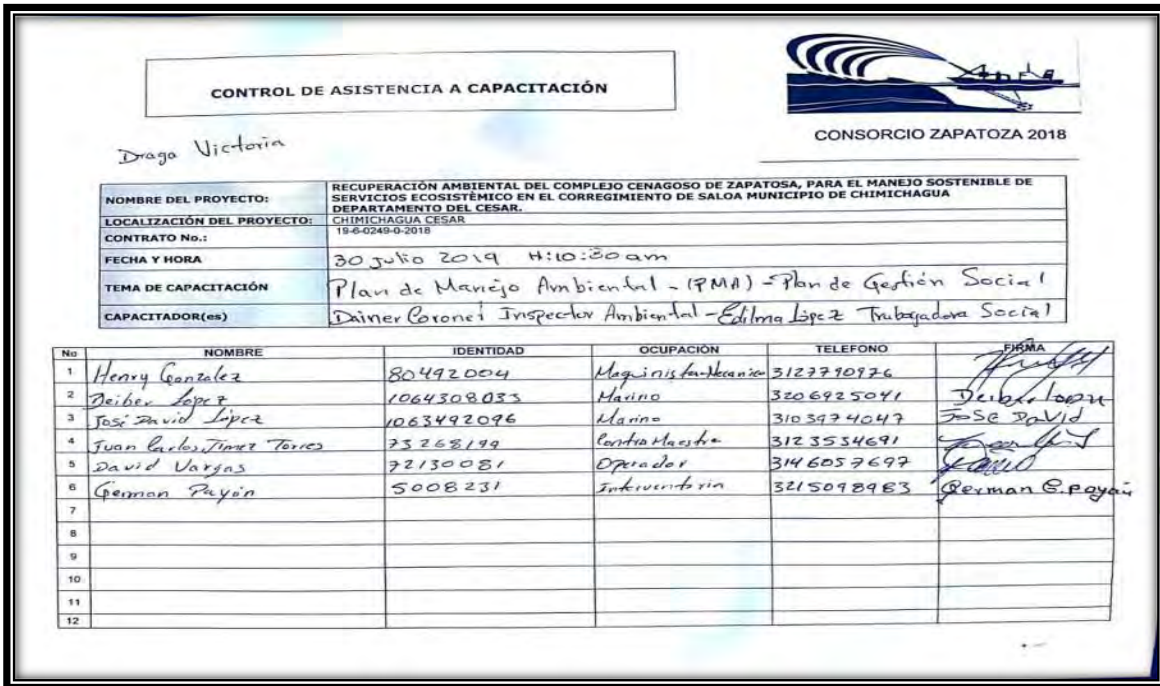 CONTROL DE ASISTENCIA A CAPACITACIÓN
CONSORCIO ZAPATOZA 2018
Draga Victoria
NOMBRE DEL PROYECTO: RECUPERACIÓN AMBIENTAL DEL COMPLEJO CENAGOSO DE ZAPATOSA, PARA EL MANEJO SOSTENIBLE DE
SERVICIOS ECOSISTÈMICO EN EL CORREGIMIENTO DE SALOA MUNICIPIO DE CHIMICHAGUA
DEPARTAMENTO DEL CESAR.
LOCALIZACIÓN DEL PROYECTO: CHIMICHAGUA CESAR
CONTRATO No.: 19-6-0249-0-2018
FECHA Y HORA 30 julio 2019 H:10:30 am
TEMA DE CAPACITACIÓN Plan de Manejo Ambiental - (PMA) - Plan de Gestión Social
CAPACITADOR(es) Dainer Coronel Inspector Ambiental - Edilma López Trabajadora Social
No NOMBRE IDENTIDAD OCUPACIÓN TELEFONO FIRMA
1 Henry Gonzalez 80492004 Maquinista-Mecanico 3127790976
2 Deiber Lopez 1064308033 Marino 3206925041 Deiber Lopez
3 José David López 1063492096 Marino 3103974047 JoSe DaVid
4 Juan Carlos Jimez Torres 73268199 Contra Maestre 3123534691
5 David Vargas 72130081 Operador 3146057697
6 German Payán 5008231 Interventoria 3215098983 German E. payán
7
8
9
10
11
12